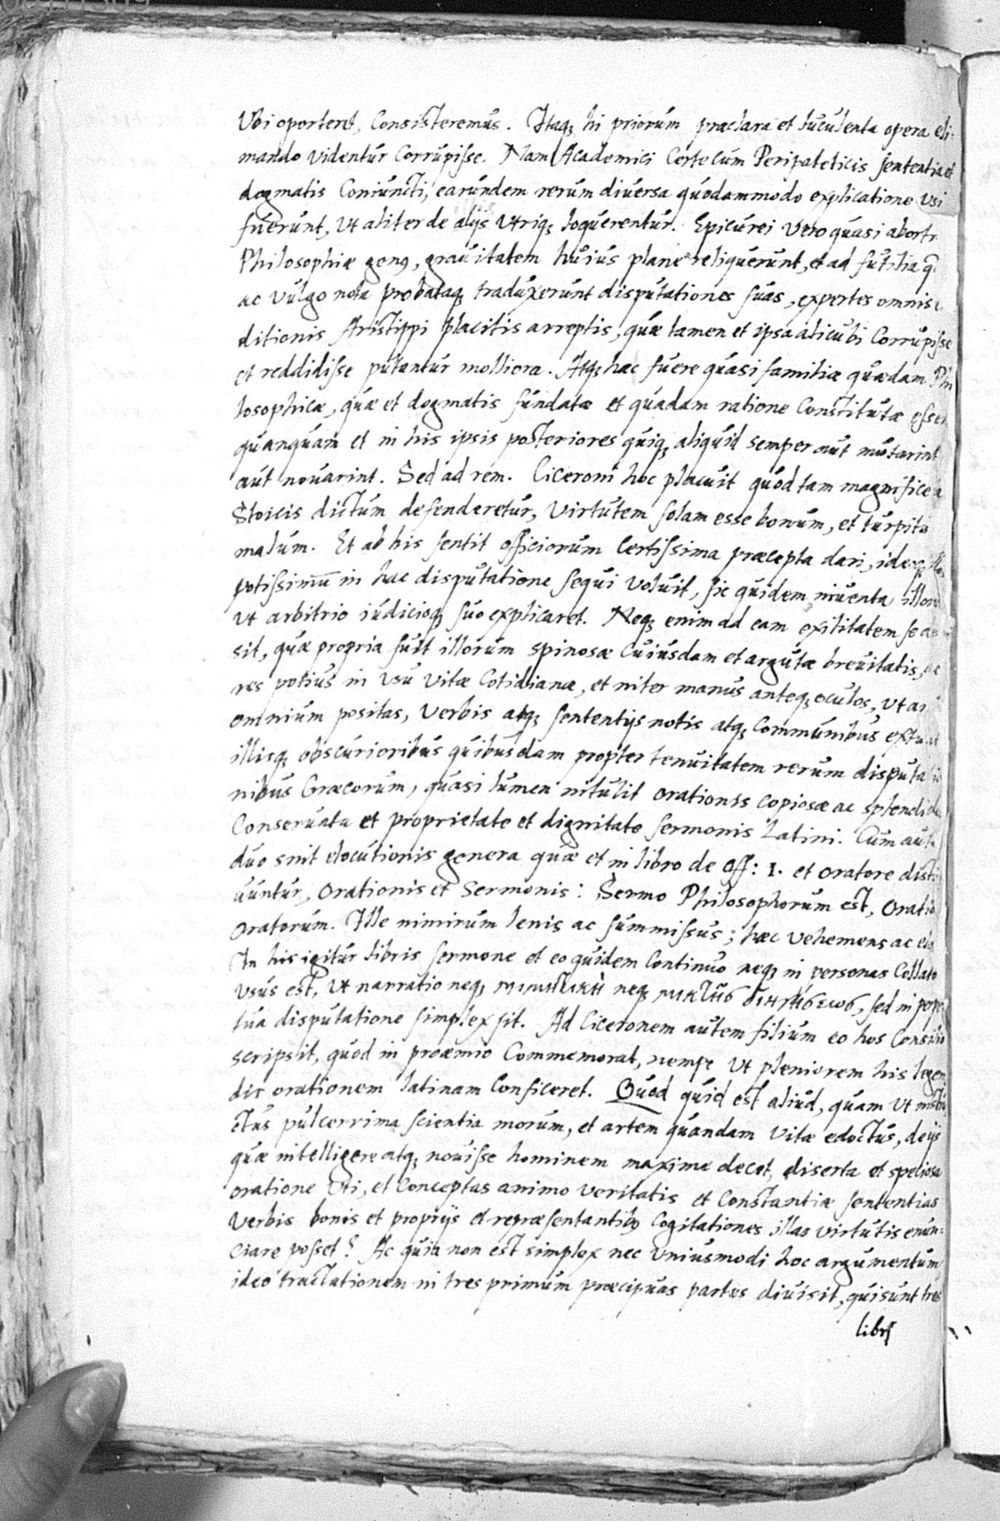 Vbi oporteret, Consisteremus. Itaq, hi priorum praeclara et luculenta opera eli-
mando videntur Corrupisse. Nam Academici Certe Cum Peripateticis sententia et
dogmatis Coniuncti, earundem rerum diversa quodammodo explicatione vsi
fuerunt, Vt aliter de alijs Vtriq, loquerentur. Epicurei Vero quasi
Philosophiae genus, gravitatem huius plane reliquerunt, et ad futilia
ac vulgo nota probataq, traduxerunt disputationes suas, expertes omnis
ditionis Aristippi placitis arreptis, quae tamen et ipsa alicubi Corrupisse
et reddidisse putantur molliora. Atq, hae fuere quasi familiae quaedam Phi
losophicae, quae et dogmatis fundatae et quadam ratione Constitutae essent
quanquam et in his ipsis posteriores quiq, aliquid semper aut mutarint
aut novarint. Sed ad rem. Ciceroni hoc placuit quod tam magnifice a
Stoicis dictum defenderetur, Virtutem solam esse bonum, et turpitu
malum. Et ab his sentit officiorum Certissima praecepta dari, ideoq,
potissimū in hac disputatione sequi voluit, sic quidem inventa illorum
vt arbitrio iudicioq, suo explicaret. Neq, enim ad eam exilitatem se
sit, quae propria fuit illorum spinosae Cuiusdam et argutae brevitatis,
res potius in Vsu vitae Cotidianae, et inter manus anteq, oculos, Vt
omnium positas, Verbis atq, sententijs notis atq, Communibus
illisq, obscurioribus quibusdam propter tenuitatem rerum disputatio
nibus Graecorum, quasi lumen intulit orationis copiosae ac splendidae
Conservata et proprietate et dignitate sermonis Latini. Cum aut
duo sint elocutionis genera quae et in libro de off: 1. et oratore disti
uuntur, Orationis et Sermonis: Sermo Philosophorum est, Oratio
Oratorum. Ille nimirum lenis ac summissus; haec vehemens ac
In his igitur libris sermone et eo quidem Continuo neq, in personas Collato
Vsus est, Vt narratio neq, μιμητικὴ neq, μικτῆς διηγήσεως, sed in perpe
tua disputatione simplex sit. Ad Ciceronem autem filium eo hos Consilio
scripsit, quod in prooemio Commemorat, nempe Vt pleniorem his legen
dis orationem latinam Conficeret. Quod quid est aliud, quam Vt
ctus pulcerrima scientia morum, et artem quandam vitae edoctus, de ijs
quae intelligere atq, novisse hominem maxime decet, diserta et speciosa
oratione Vti, et Conceptas animo veritatis et Constantiae sententias
Verbis bonis et proprijs et repraesentantibus Cogitationes illas virtutis enun-
ciare posset? Ac quia non est simplex nec Vniusmodi hoc argumentum
ideo tractationem in tres primum praecipuas partes divisit, qui sunt tres
libri